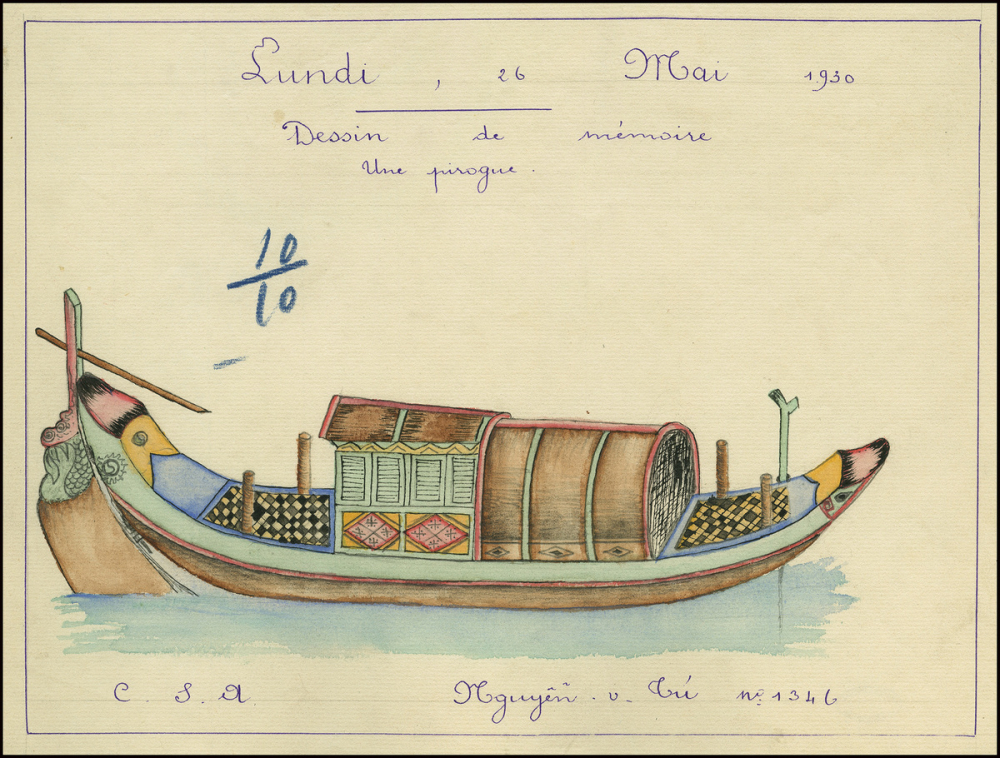 Lundi, 26 Mai 1930
Dessin de mémoire
Une pirogue.
10
10
C. S. A.
Nguyễn. v. Tú nº 1346